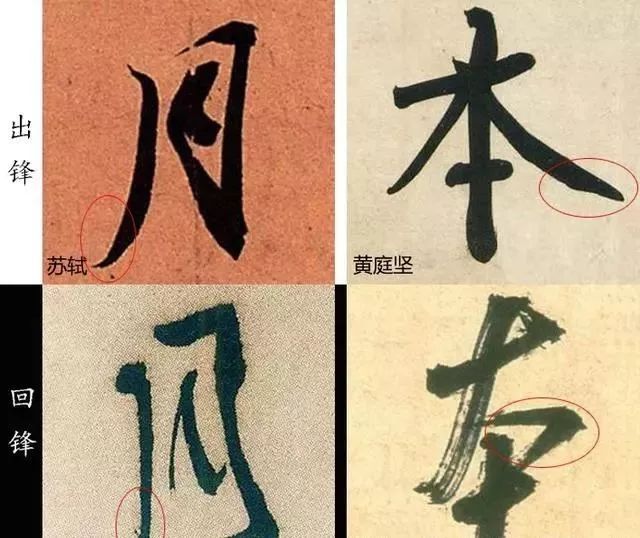 出锋
月
苏轼
本
黄庭坚
回锋
月
本